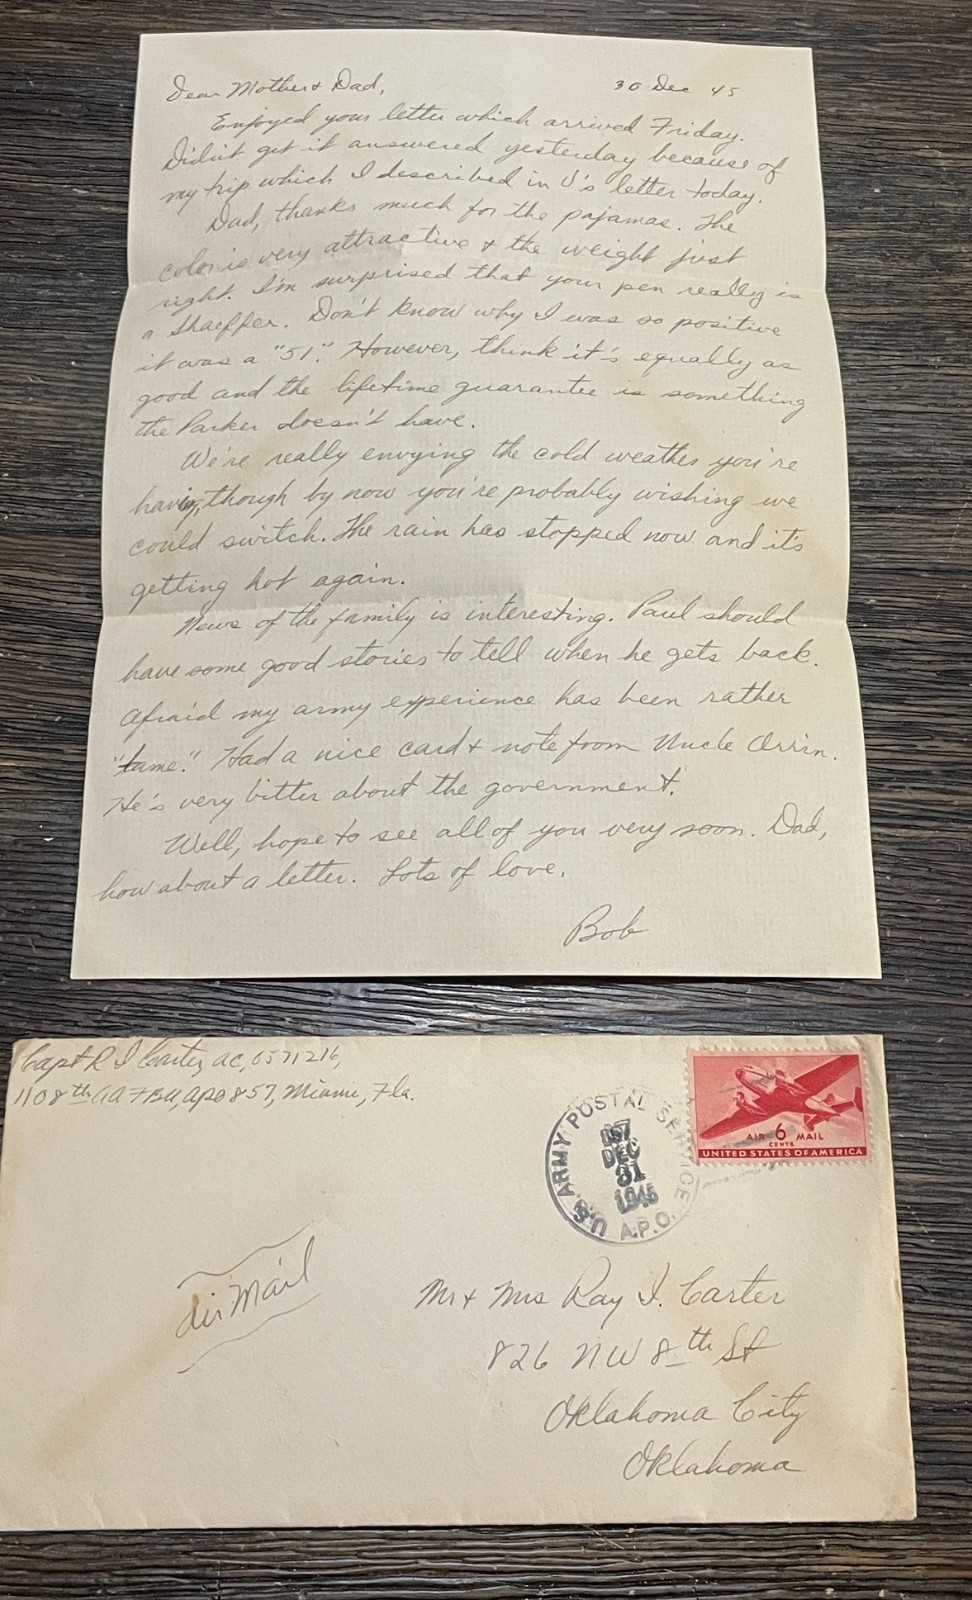 Dear Mother & Dad, 30 Dec 45
Enjoyed your letter which arrived Friday.
Didn't get it answered yesterday because of
my trip which I described in J's letter today.
Dad, thanks much for the pajamas. The
color is very attractive & the weight just
right. I'm surprised that your pen really is
a Shaeffer. Don't know why I was so positive
it was a "51". However, think it's equally as
good and the lifetime guarantee is something
the Parker doesn't have.
We're really envying the cold weather you're
having, though by now you're probably wishing we
could switch. The rain has stopped now and it's
getting hot again.
News of the family is interesting. Paul should
have some good stories to tell when he gets back.
Afraid my army experience has been rather
"tame." Had a nice card & note from Uncle Orrin.
He's very bitter about the government.
Well, hope to see all of you very soon. Dad,
how about a letter. Lots of love,
Bob
Capt R I Carter, AC, 0571216,
1108th AAFBU, APO 857, Miami, Fla.
U.S. ARMY POSTAL SERVICE
DEC
31
1945
A.P.O.
AIR 6 MAIL
CENTS
UNITED STATES OF AMERICA
Air Mail
Mr & Mrs Ray I. Carter
826 NW 8th St
Oklahoma City
Oklahoma